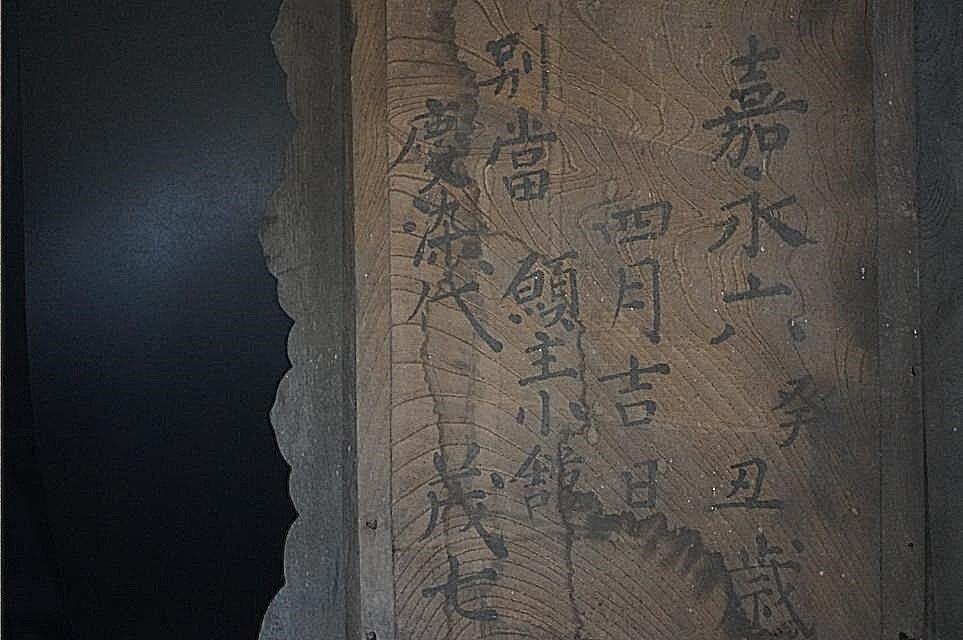 嘉永六癸丑歳
四月吉日
願主小舘
別當
慶添代
茂七